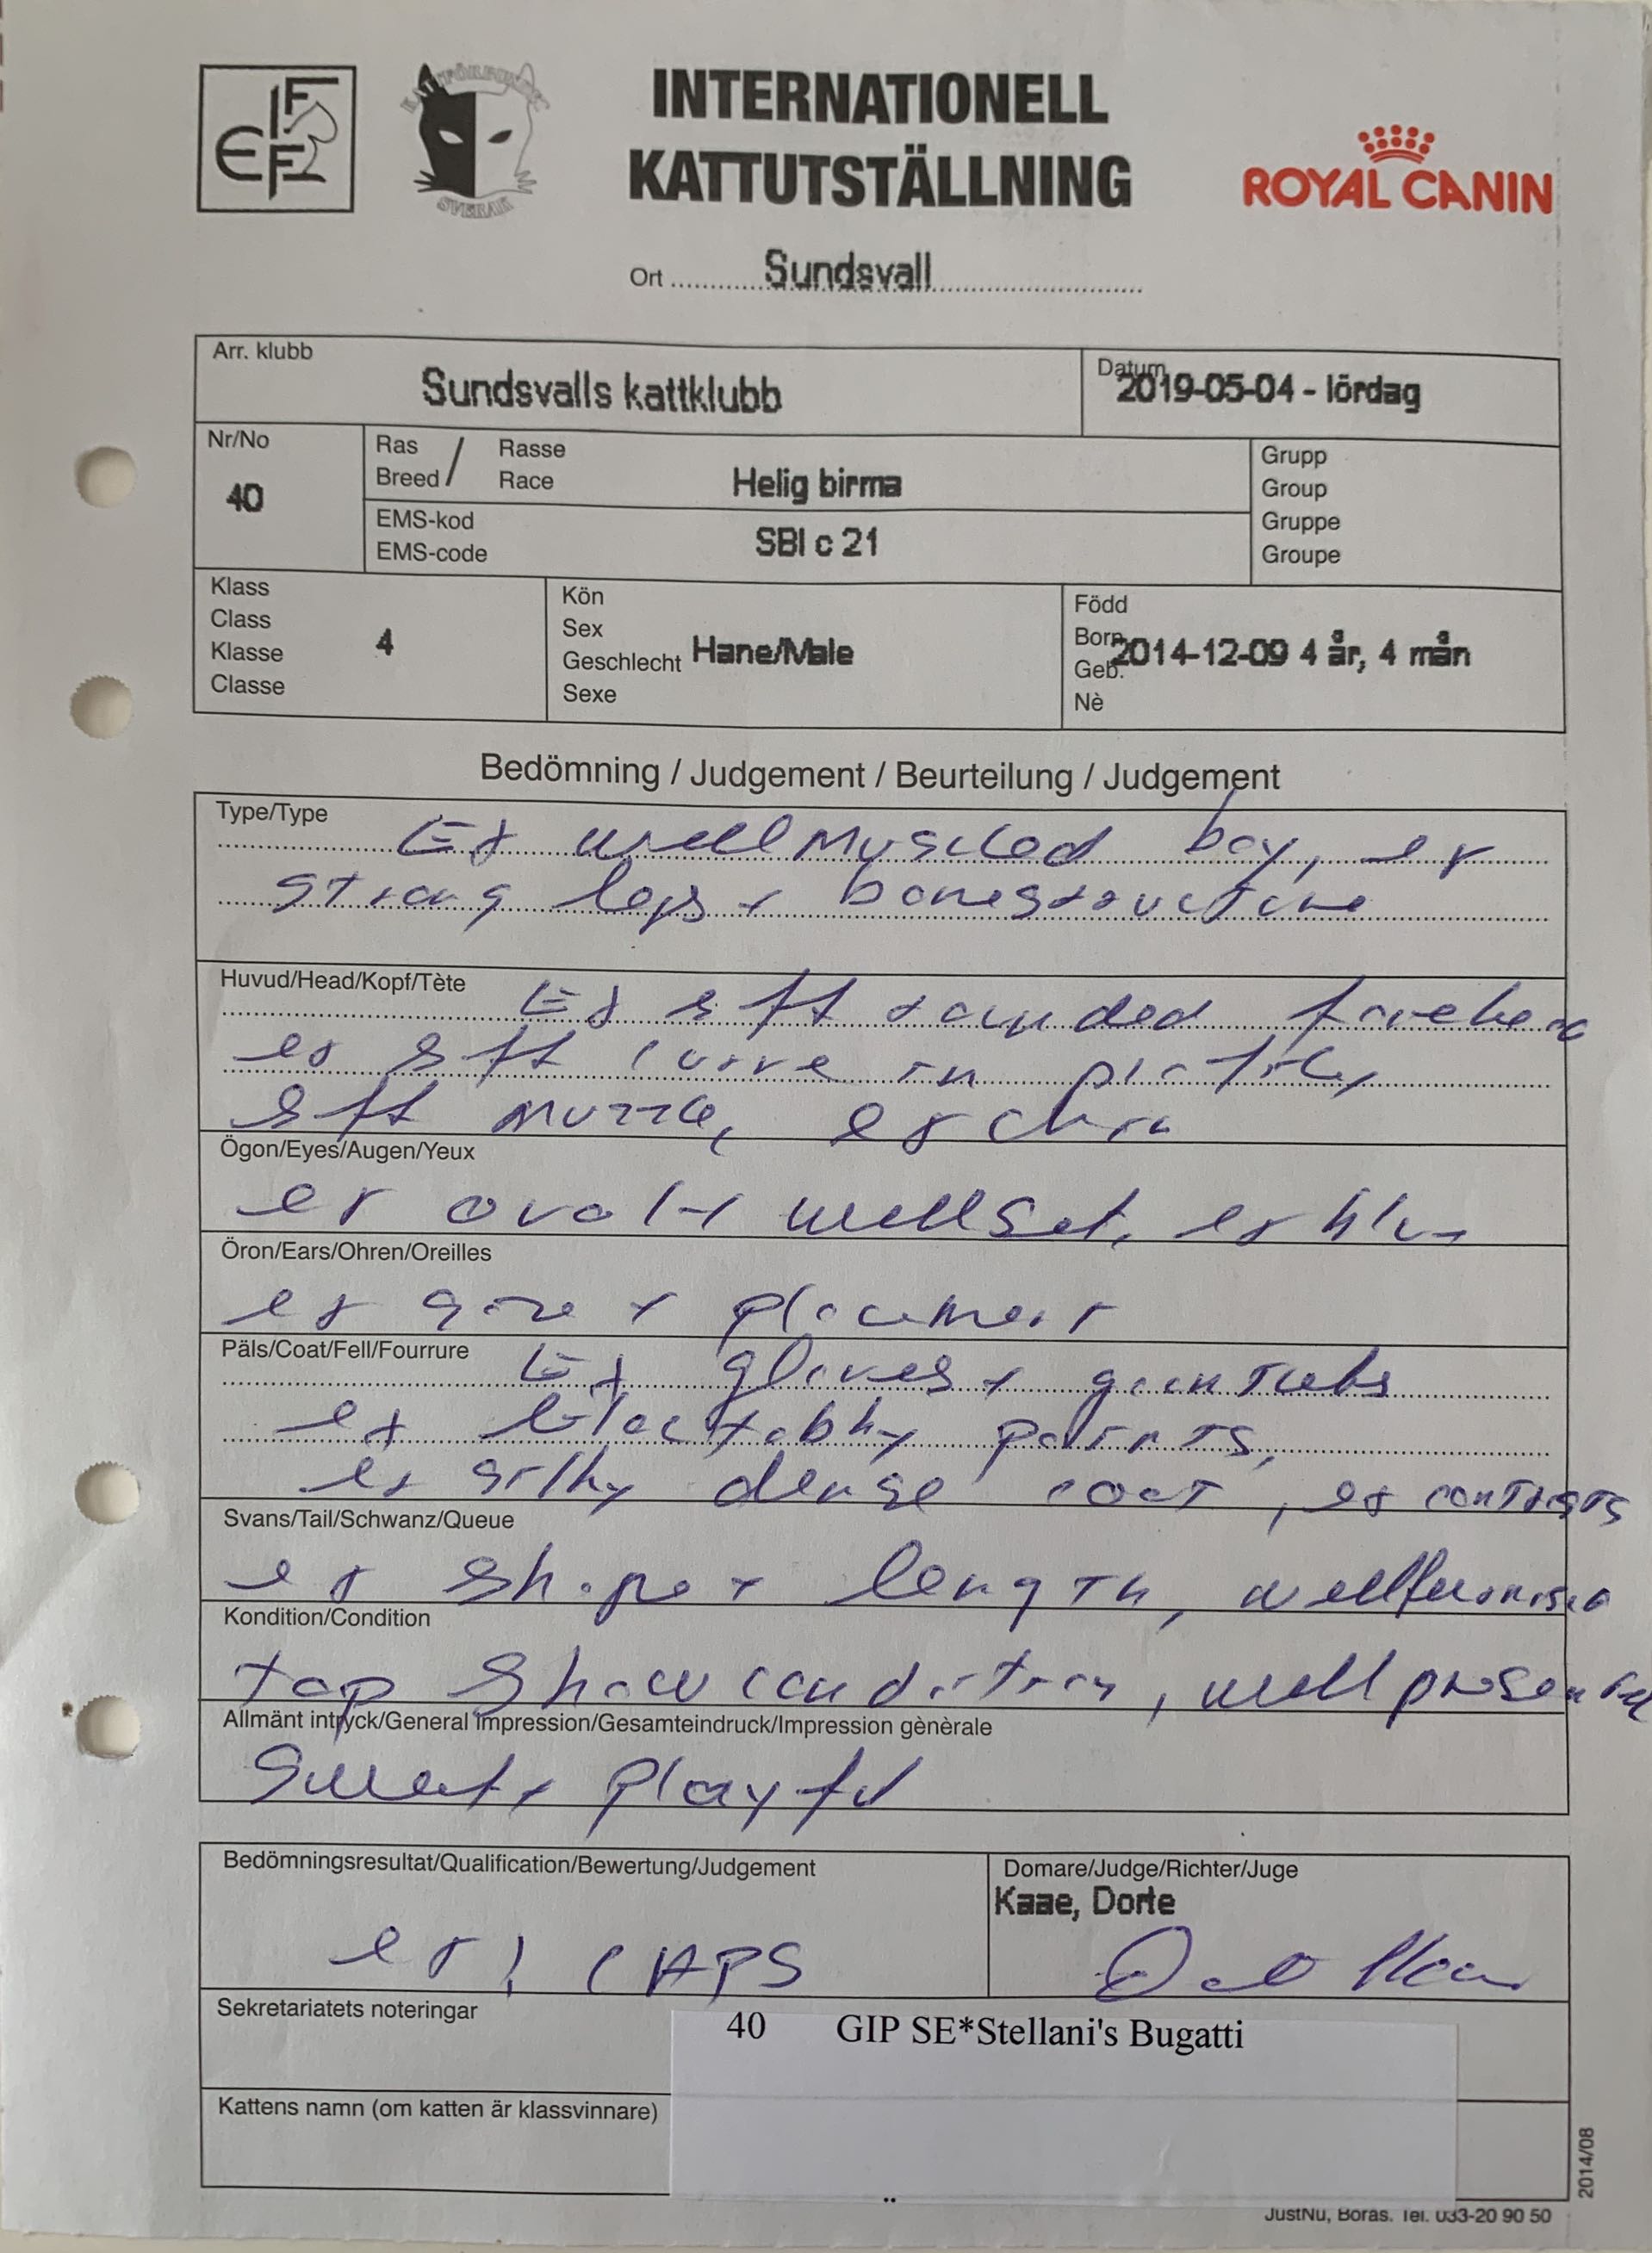 FIFE
SVERAK
INTERNATIONELL
KATTUTSTÄLLNING
ROYAL CANIN
Ort Sundsvall
Arr. klubb
Sundsvalls kattklubb
Datum
2019-05-04 - lördag
Nr/No
40
Ras / Rasse
Breed Race
Helig birma
EMS-kod
EMS-code
SBI c 21
Grupp
Group
Gruppe
Groupe
Klass
Class
Klasse
Classe
4
Kön
Sex
Geschlecht
Sexe
Hane/Male
Född
Born
Geb.
Nè
2014-12-09 4 år, 4 mån
Bedömning / Judgement / Beurteilung / Judgement
Type/Type
Ex wellmuscled boy, ex
strong legs + bonestructure
Huvud/Head/Kopf/Tète
Ex soft rounded forehead
ex soft curve in profile,
soft muzzle, ex chin
Ögon/Eyes/Augen/Yeux
ex oval + wellset, ex blue
Öron/Ears/Ohren/Oreilles
ex size + placement
Päls/Coat/Fell/Fourrure
Ex gloves + gauntlets
ex points,
ex silky dense coat, ex contrasts
Svans/Tail/Schwanz/Queue
ex shape + length, wellfurnished
Kondition/Condition
top show condition, well presented
Allmänt intryck/General Impression/Gesamteindruck/Impression gènèrale
Sweet + playful
Bedömningsresultat/Qualification/Bewertung/Judgement
ex 1 CAPS
Domare/Judge/Richter/Juge
Kaae, Dorte
Sekretariatets noteringar
40 GIP SE*Stellani's Bugatti
Kattens namn (om katten är klassvinnare)
2014/08
JustNu, Borås. Tel. 033-20 90 50